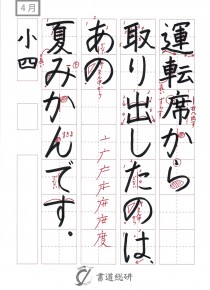 4月
運転席から
取り出したのは
あの
夏みかんです。
小四
書道総研